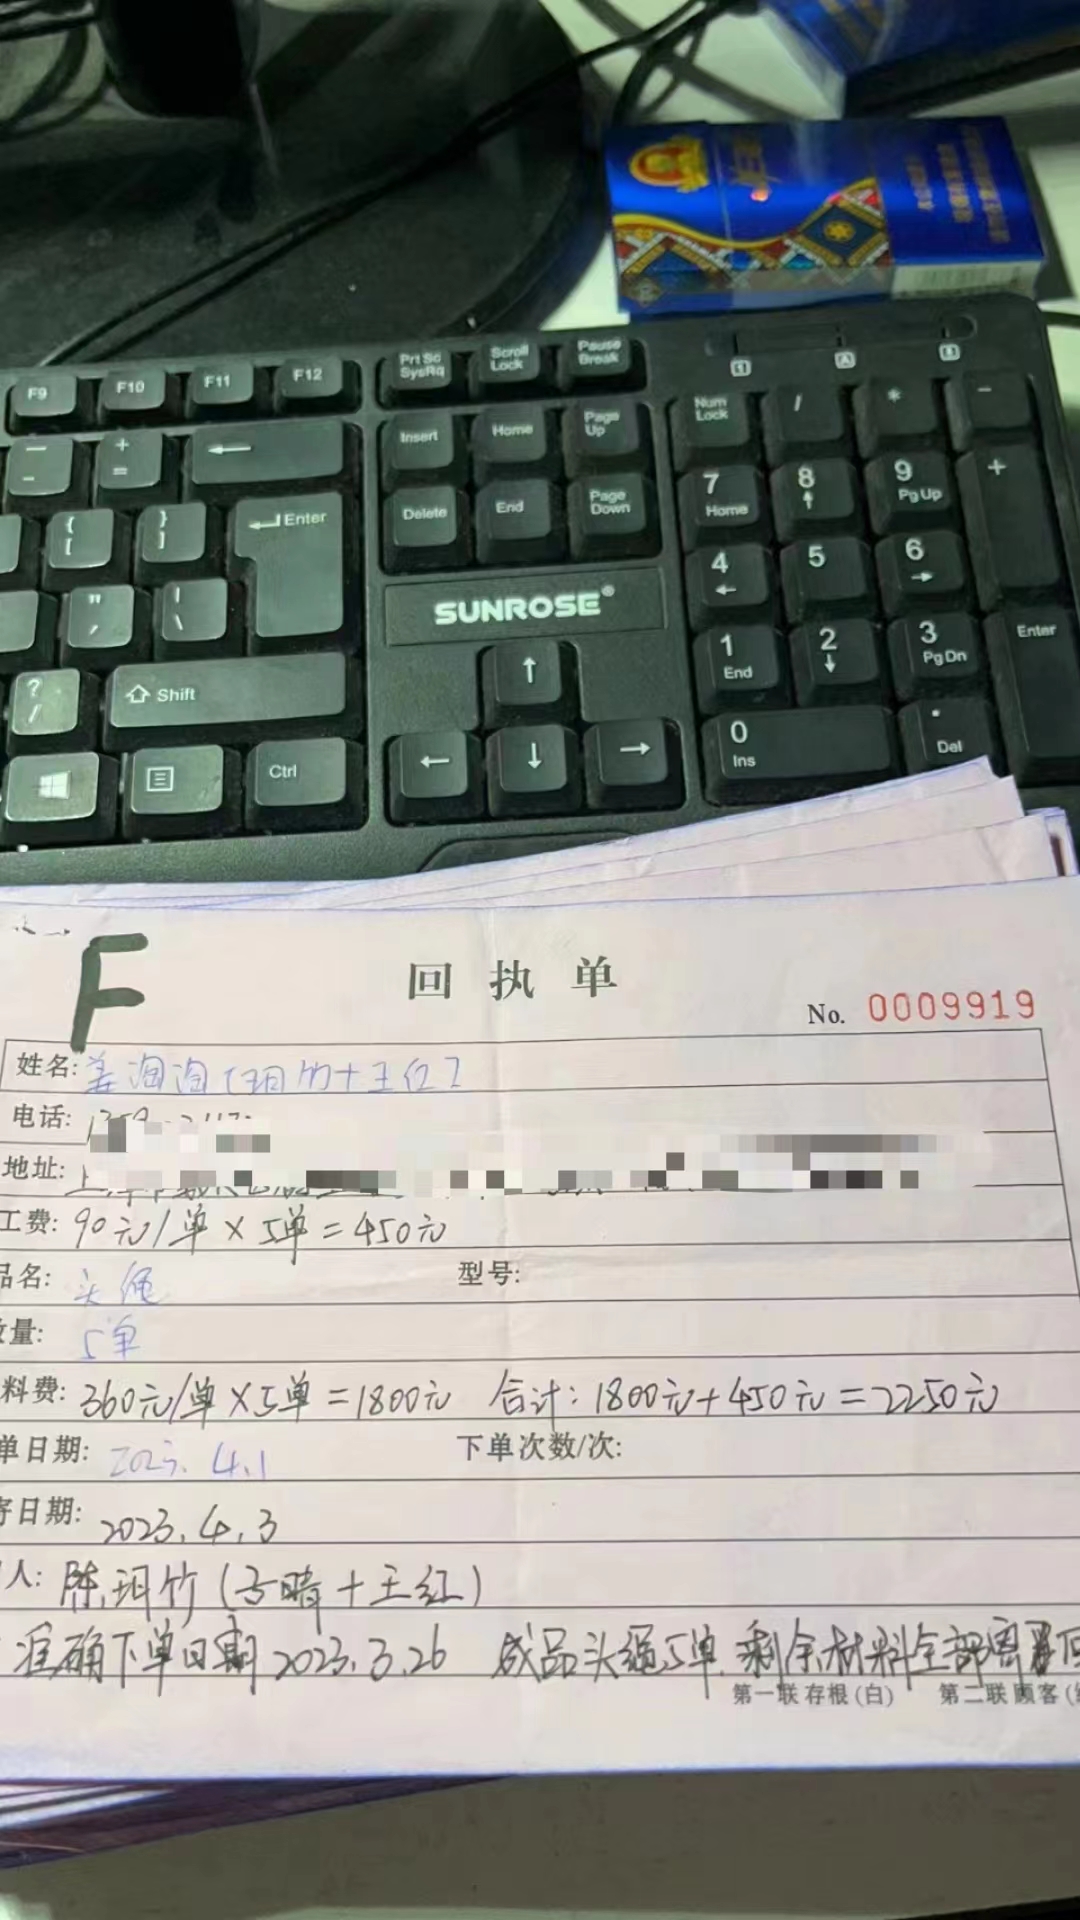 F9 F10 F11 F12 Prt Sc SysRq Scroll Lock Pause Break
1 A
— - + = Insert Home Page Up Num Lock / * -
{ [ } ] Enter Delete End Page Down 7 Home 8 9 Pg Up +
" , | \ SUNROSE® 4 5 6
? / Shift 1 End 2 3 Pg Dn Enter
Ctrl 0 Ins . Del
F
回执单
No. 0009919
姓名: 姜淘淘(玥竹+王红)
电话:
地址:
工费: 90元/单×5单=450元
品名: 头绳 型号:
数量: 5单
料费: 360元/单×5单=1800元 合计:1800元+450元=2250元
单日期: 2023.4.1 下单次数/次:
寄日期: 2023.4.3
人: 陈玥竹(子晴+王红)
准确下单日期2023.3.26 成品头绳5单 剩余材料全部寄
第一联 存根(白) 第二联 顾客(